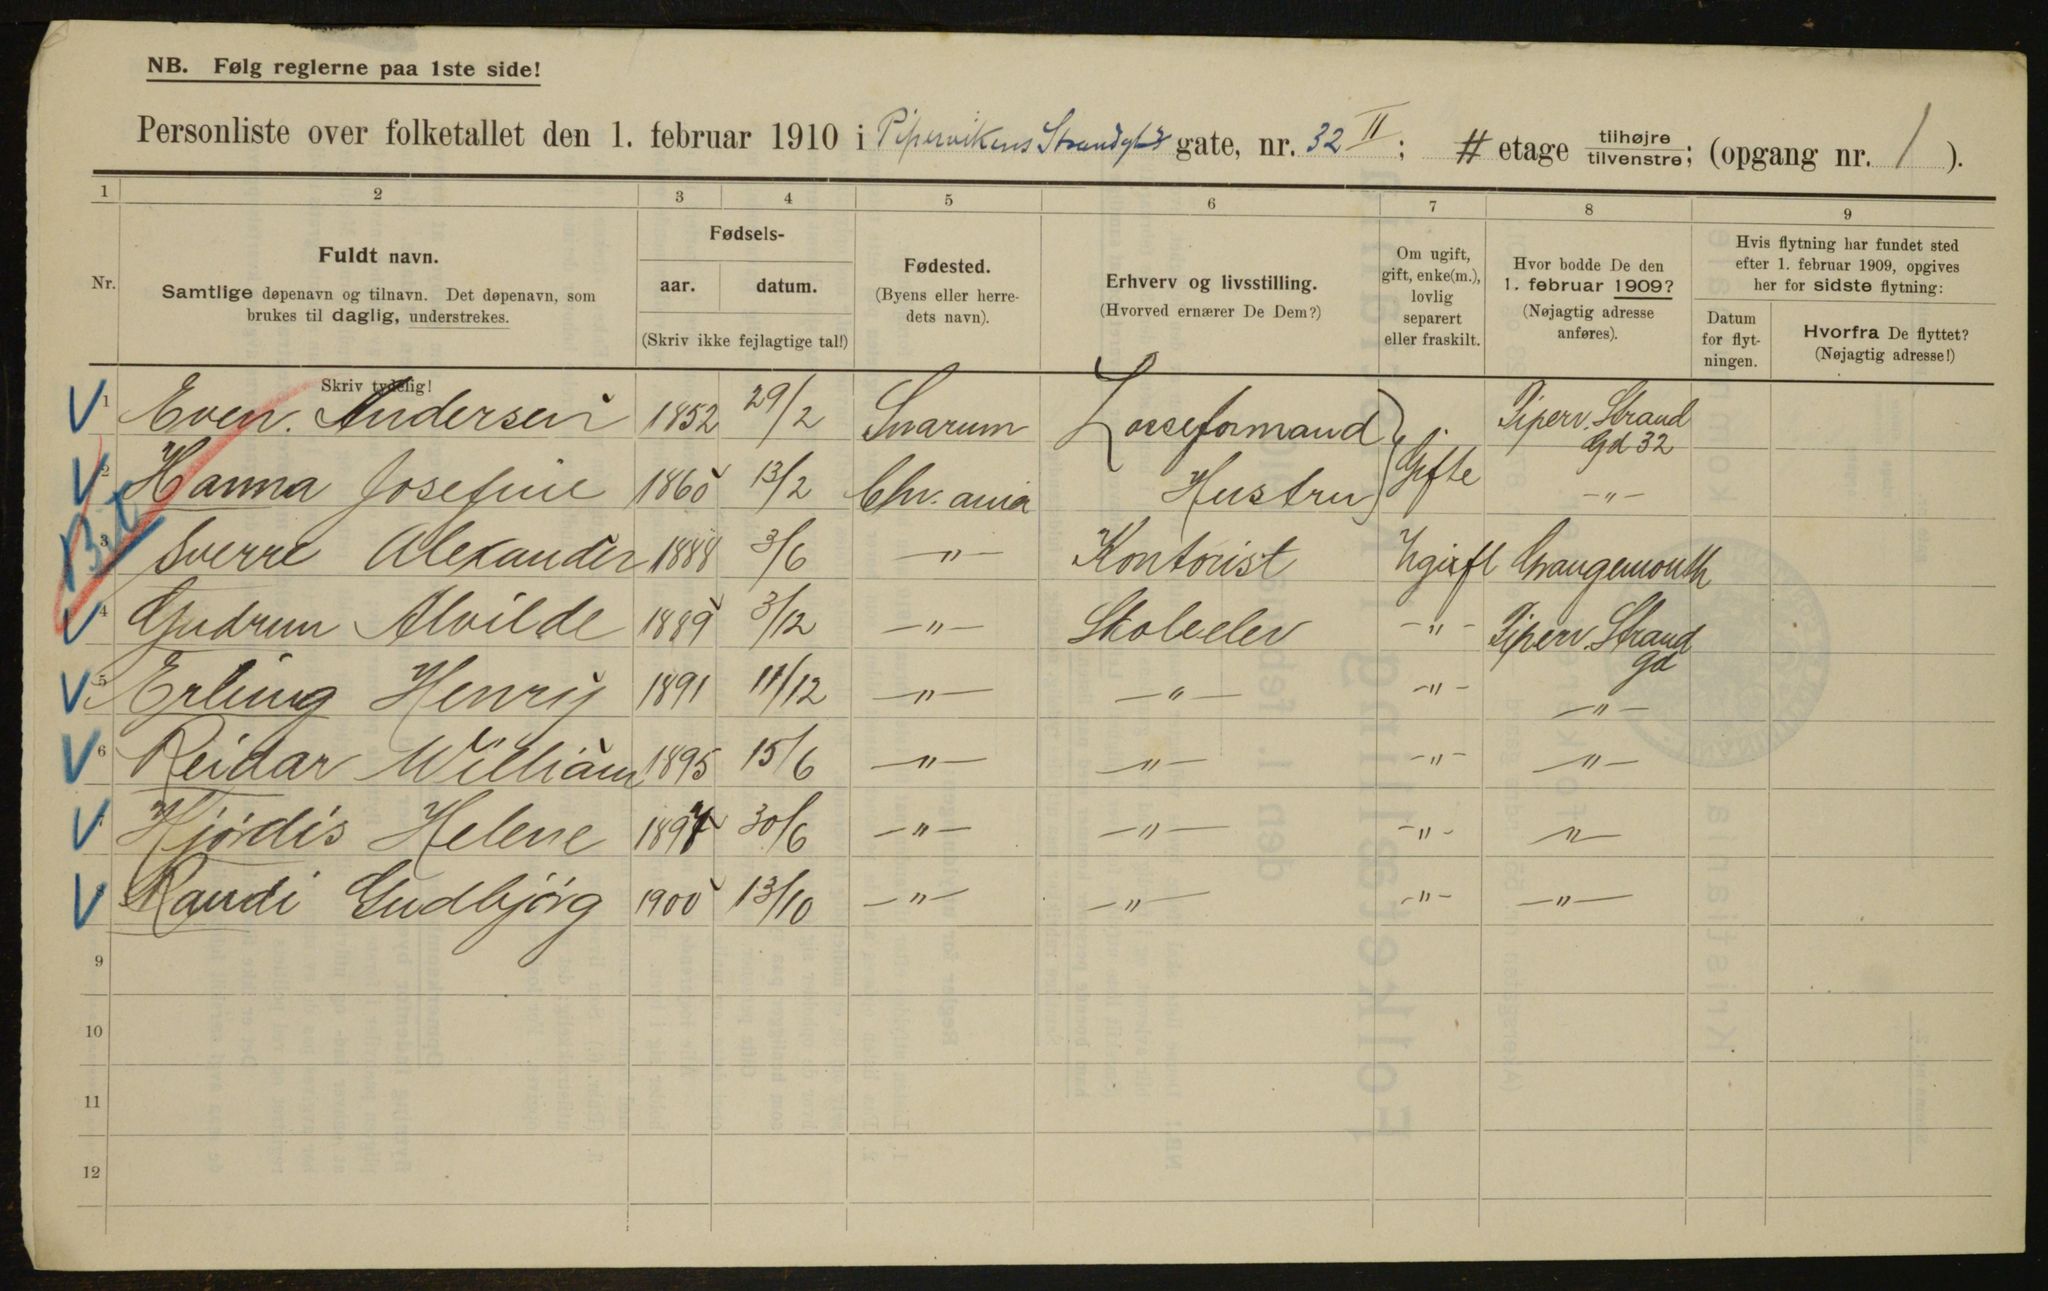 NB. Følg reglerne paa 1ste side!
Personliste over folketallet den 1. februar 1910 i Pipervikens Strandgt gate, nr. 32 II; # etage tilhøjre tilvenstre; (opgang nr. 1 ).
1 2 3 4 5 6 7 8 9
Nr.
Fuldt navn.
Samtlige døpenavn og tilnavn. Det døpenavn, som
brukes til daglig, understrekes.
Skriv tydelig!
Fødsels-
aar. datum.
(Skriv ikke fejlagtige tal!)
Fødested.
(Byens eller herre-
dets navn).
Erhverv og livsstilling.
(Hvorved ernærer De Dem?)
Om ugift,
gift, enke(m.),
lovlig
separert
eller fraskilt.
Hvor bodde De den
1. februar 1909?
(Nøjagtig adresse
anføres).
Hvis flytning har fundet sted
efter 1. februar 1909, opgives
her for sidste flytning:
Datum
for flyt-
ningen.
Hvorfra De flyttet?
(Nøjagtig adresse!)
1 Even. Andersen 1852 29/2 Snarum Losseformand Gifte Piperv. Strand
Gd 32
2 Hanna Josefine 1865 13/2 Chr. ania Hustru -"-
3 Sverre Alexander 1888 3/6 -"- Kontorist Ugift Grangemouth
4 Gudrun Alvilde 1889 3/12 -"- Skoleelev -"- Piperv. Strand
gd
5 Erling Henry 1891 11/12 -"- -"- -"- -"-
6 Reidar William 1895 15/6 -"- -"- -"- -"-
Hjørdis Helene 1897 30/6 -"- -"- -"- -"-
Randi Gudbjørg 1900 13/10 -"- -"- -"- -"-
9
10
11
12